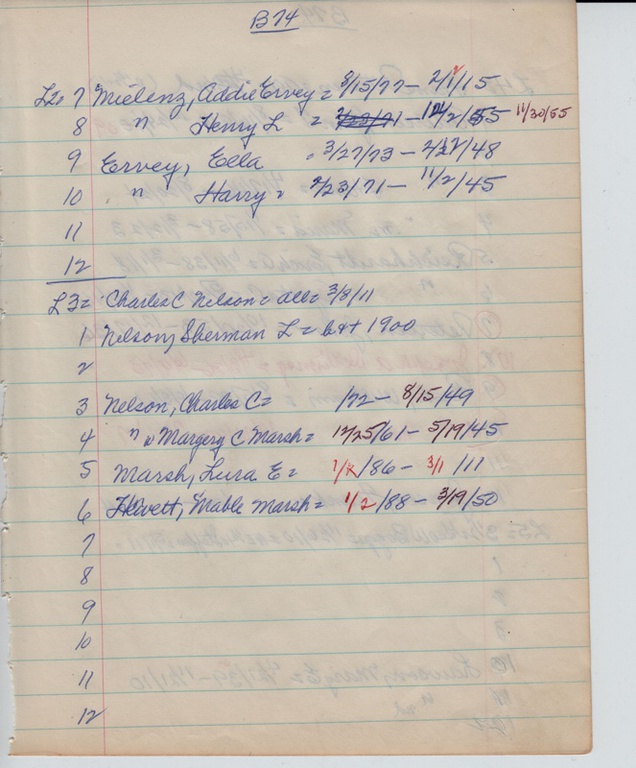 B74
L2= 7 Mielenz, Addie Ervey = 8/15/77 - 2/1/15
8 " Henry L = 11/30/55
9 Ervey, Ella = 3/27/73 - /48
10 " Harry = 2/23/71 - 11/2/45
11
12
L3= Charles C Nelson = all = 3/8/11
1 Nelson, Sherman L = b4+ 1900
2
3 Nelson, Charles C = /72 - 8/15/49
4 " w Margery C Marsh = 12/25/61 - 5/19/45
5 Marsh, Lura E = /86 - 3/1/11
6 Hewett, Mable Marsh = 1/2/88 - 3/19/50
7
8
9
10
11
12